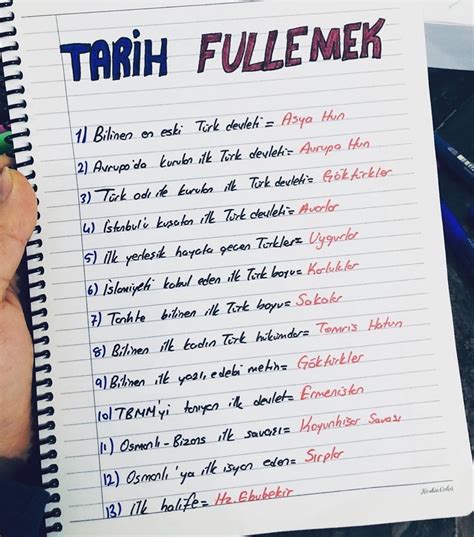 TARİH FULLEMEK
1) Bilinen en eski Türk devleti = Asya Hun
2) Avrupa'da kurulan ilk Türk devleti = Avrupa Hun
3) Türk adı ile kurulan ilk Türk devleti = Göktürkler
4) İstanbul'u kuşatan ilk Türk devleti = Avarlar
5) İlk yerleşik hayata geçen Türkler = Uygurlar
6) İslamiyeti kabul eden ilk Türk boyu = Karluklar
7) Tarihte bilinen ilk Türk boyu = Sakalar
8) Bilinen ilk kadın Türk hükümdar = Tomris Hatun
9) Bilinen ilk yazılı, edebi metin = Göktürkler
10) TBMM'yi tanıyan ilk devlet = Ermenistan
11) Osmanlı - Bizans ilk savaşı = Koyunhisar Savaşı
12) Osmanlı'ya ilk isyan eden = Sırplar
13) İlk halife = Hz. Ebubekir